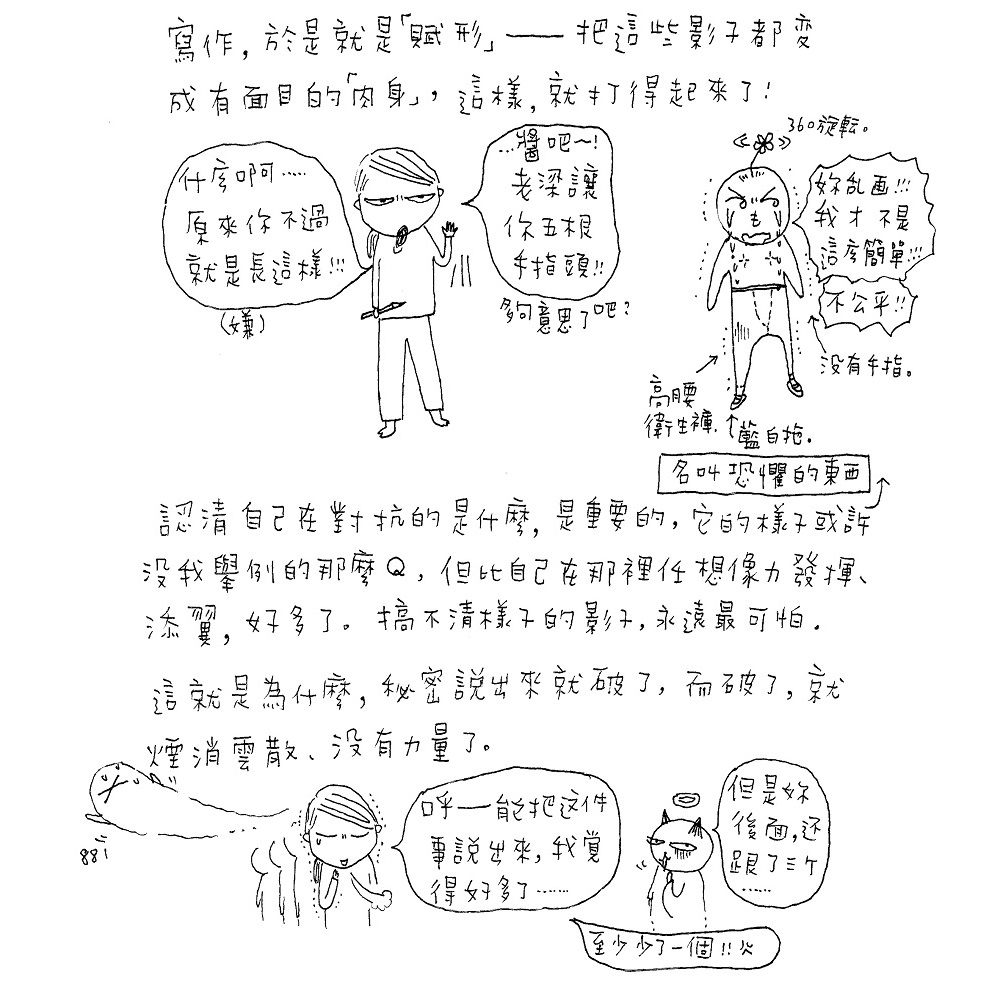 寫作，於是就是「賦形」——把這些影子都変
成有面目的「肉身」，這樣，就打得起來了！
什麼啊……
原來你不過
就是長這樣!!!
(嫌)
…醬吧～!
老梁讓
你五根
手指頭!!
夠意思了吧?
360旋転。
妳乱画!!!
我才不是
這麼簡單!!!
不公平!!
沒有手指。
高腰
衛生褲.
藍白拖.
名叫恐懼的東西
認清自己在對抗的是什麼，是重要的，它的樣子或許
沒我舉例的那麼Q，但比自己在那裡任想像力發揮、
添翼，好多了。搞不清樣子的影子，永遠最可怕.
這就是為什麼，秘密說出來就破了，而破了，就
煙消雲散、沒有力量了。
88!
呼——能把这件
事說出來，我覺
得好多了……
但是妳
後面，还
跟了三个
……
至少少了一個!!